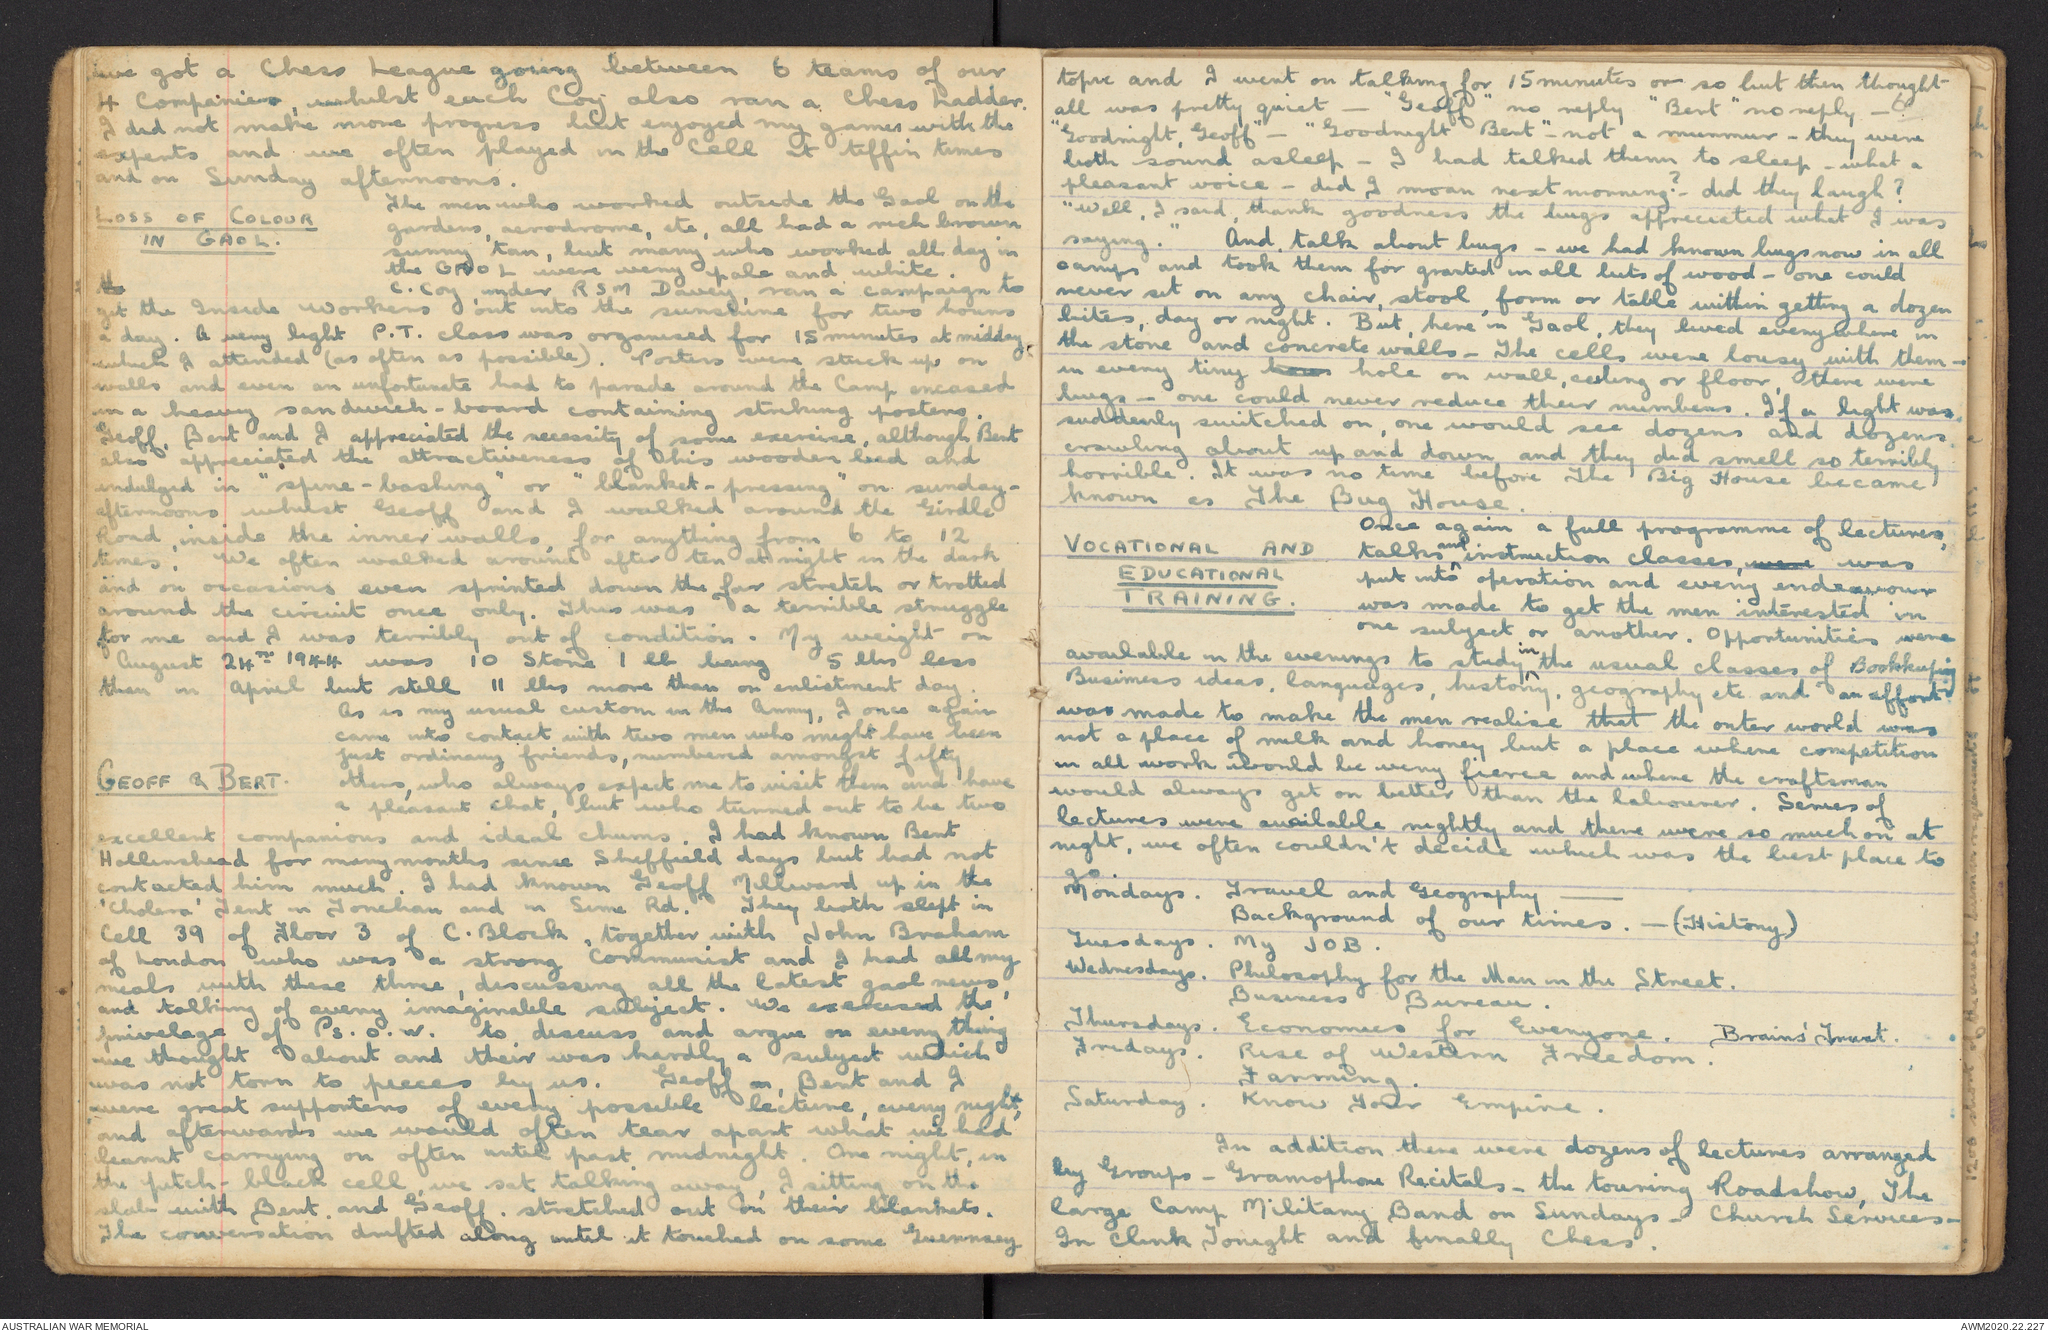 we got a Chess League going between 6 teams of our
4 Companies, whilst each Coy also ran a Chess Ladder.
I did not make more progress but enjoyed my games with the
experts and we often played in the Cell at tiffin times
and on Sunday afternoons.
LOSS OF COLOUR
IN GAOL.
The men who worked outside the Gaol on the
gardens, aerodrome, etc, all had a rich brown
sunny tan, but many who worked all day in
the GAOL were very pale and white.
C. Coy, under RSM Davey, ran a campaign to
get the Inside Workers out into the sunshine for two hours
a day. A very light P.T. class was organised for 15 minutes at midday
which I attended (as often as possible). Posters were stuck up on
walls and even an unfortunate had to parade around the Camp encased
in a heavy sandwich-board containing striking posters.
Geoff, Bert and I appreciated the necessity of some exercise, although Bert
also appreciated the attractiveness of his wooden bed and
indulged in "spine-bashing" or "blanket-pressing" on sunday-
afternoons whilst Geoff and I walked around the Girdle
Road, inside the inner walls, for anything from 6 to 12
times. We often walked around after ten at night in the dark
and on occasions even sprinted down the far stretch or trotted
around the circuit once only. This was a terrible struggle
for me and I was terribly out of condition. My weight on
August 24th 1944 was 10 Stone 1 lb being 5 lbs less
than in April but still 11 lbs more than on enlistment day.
GEOFF & BERT.
As is my usual custom in the Army, I once again
came into contact with two men who might have been
just ordinary friends, numbered amongst fifty
others, who always expect me to visit them and have
a pleasant chat, but who turned out to be two
excellent companions and ideal chums. I had known Bert
Hollinshead for many months since Sheffield days but had not
contacted him much. I had known Geoff Millward up in the
'Cholera' Tent in Tonchan and in Sime Rd. They both slept in
Cell 39 of Floor 3 of C. Block, together with John Braham
of London who was a strong Communist and I had all my
meals with these three, discussing all the latest gaol news,
and talking of every imaginable subject. We exercised the
privelage of Ps.O.W. to discuss and argue on every thing
we thought about and their was hardly a subject which
was not torn to pieces by us. Geoff, Bert and I
were great supporters of every possible lecture, every night,
and afterwards we would often tear apart what we had
learnt carrying on often until past midnight. One night, in
the pitch-black cell, we sat talking away, I sitting on the
slab with Bert and Geoff stretched out on their blankets.
The conversation drifted along until it touched on some Guernsey
topic and I went on talking for 15 minutes or so but then thought
all was pretty quiet — "Geoff" no reply "Bert" no reply —
"Goodnight, Geoff" — "Goodnight Bert" - not a murmur - they were
both sound asleep - I had talked them to sleep - what a
pleasant voice - did I moan next morning? - did they laugh?
"Well, I said, thank goodness the bugs appreciated what I was
saying." And, talk about bugs - we had known bugs now in all
camps and took them for granted in all huts of wood - one could
never sit on any chair, stool, form or table within getting a dozen
bites, day or night. But, here in Gaol, they lived everywhere in
the stone and concrete walls - The cells were lousy with them -
in every tiny hole on wall, ceiling or floor, there were
bugs - one could never reduce their numbers. If a light was
suddenly switched on, one would see dozens and dozens
crawling about up and down and they did smell so terribly
horrible. It was no time before The Big House became
known as The Bug House.
VOCATIONAL AND
EDUCATIONAL
TRAINING.
Once again a full programme of lectures,
talks and instruction classes, were was
put into operation and every endeavour
was made to get the men interested in
one subject or another. Opportunities were
available in the evenings to study in the usual classes of Bookkeeping
Business ideas, languages, history, geography etc. and an effort
was made to make the men realise that the outer world was
not a place of milk and honey but a place where competition
in all work would be very fierce and where the craftsman
would always get on better than the labourer. Series of
lectures were available nightly and there were so much on at
night, we often couldn't decide which was the best place to
go.
Mondays. Travel and Geography ——
Background of our times. — (History)
Tuesdays. My JOB.
Wednesdays. Philosophy for the Man in the Street.
Business Bureau.
Thursdays. Economics for Everyone. Brains' Trust.
Fridays. Rise of Western Freedom.
Farming.
Saturday. Know Your Empire.
In addition there were dozens of lectures arranged
by Groups - Gramophone Recitals - the touring Roadshow, The
large Camp Military Band on Sundays - Church Services -
In Clink Tonight and finally Chess.
AUSTRALIAN WAR MEMORIAL
AWM2020.22.227